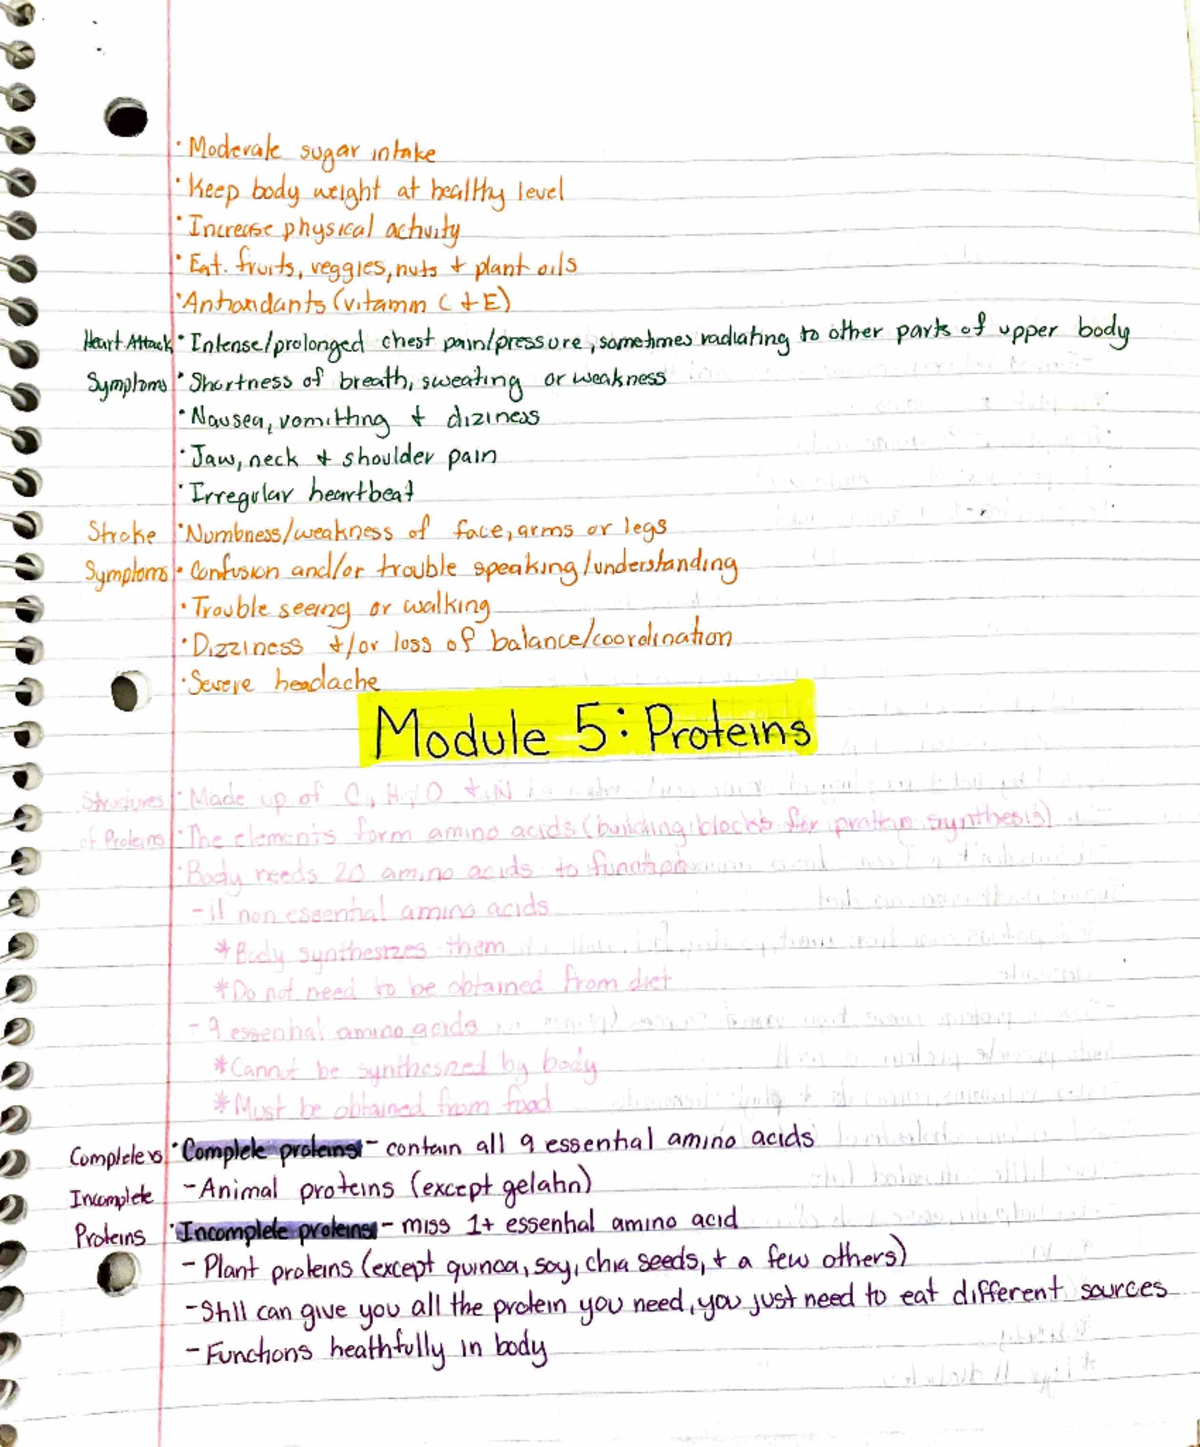 · Moderate sugar intake
· Keep body weight at healthy level
· Increase physical activity
· Eat. fruits, veggies, nuts + plant oils
· Antioxidants (vitamin C + E)
Heart Attack · Intense/prolonged chest pain/pressure, sometimes radiating to other parts of upper body
Symptoms · Shortness of breath, sweating or weakness
· Nausea, vomitting + diziness
· Jaw, neck + shoulder pain
· Irregular heartbeat
Stroke · Numbness/weakness of face, arms or legs
Symptoms · Confusion and/or trouble speaking/understanding
· Trouble seeing or walking
· Dizziness +/or loss of balance/coordination
· Severe headache
Module 5: Proteins
Structures · Made up of C, H, O + N
of Proteins · The elements form amino acids (building blocks for protein synthesis)
· Body needs 20 amino acids to function
- 11 non essential amino acids
* Body synthesizes them
* Do not need to be obtained from diet
- 9 essential amino acids
* Cannot be synthesized by body
* Must be obtained from food
Complete vs · Complete proteins - contain all 9 essential amino acids
Incomplete - Animal proteins (except gelatin)
Proteins · Incomplete proteins - miss 1+ essential amino acid
- Plant proteins (except quinoa, soy, chia seeds, + a few others)
- Still can give you all the protein you need, you just need to eat different sources
- Functions healthfully in body